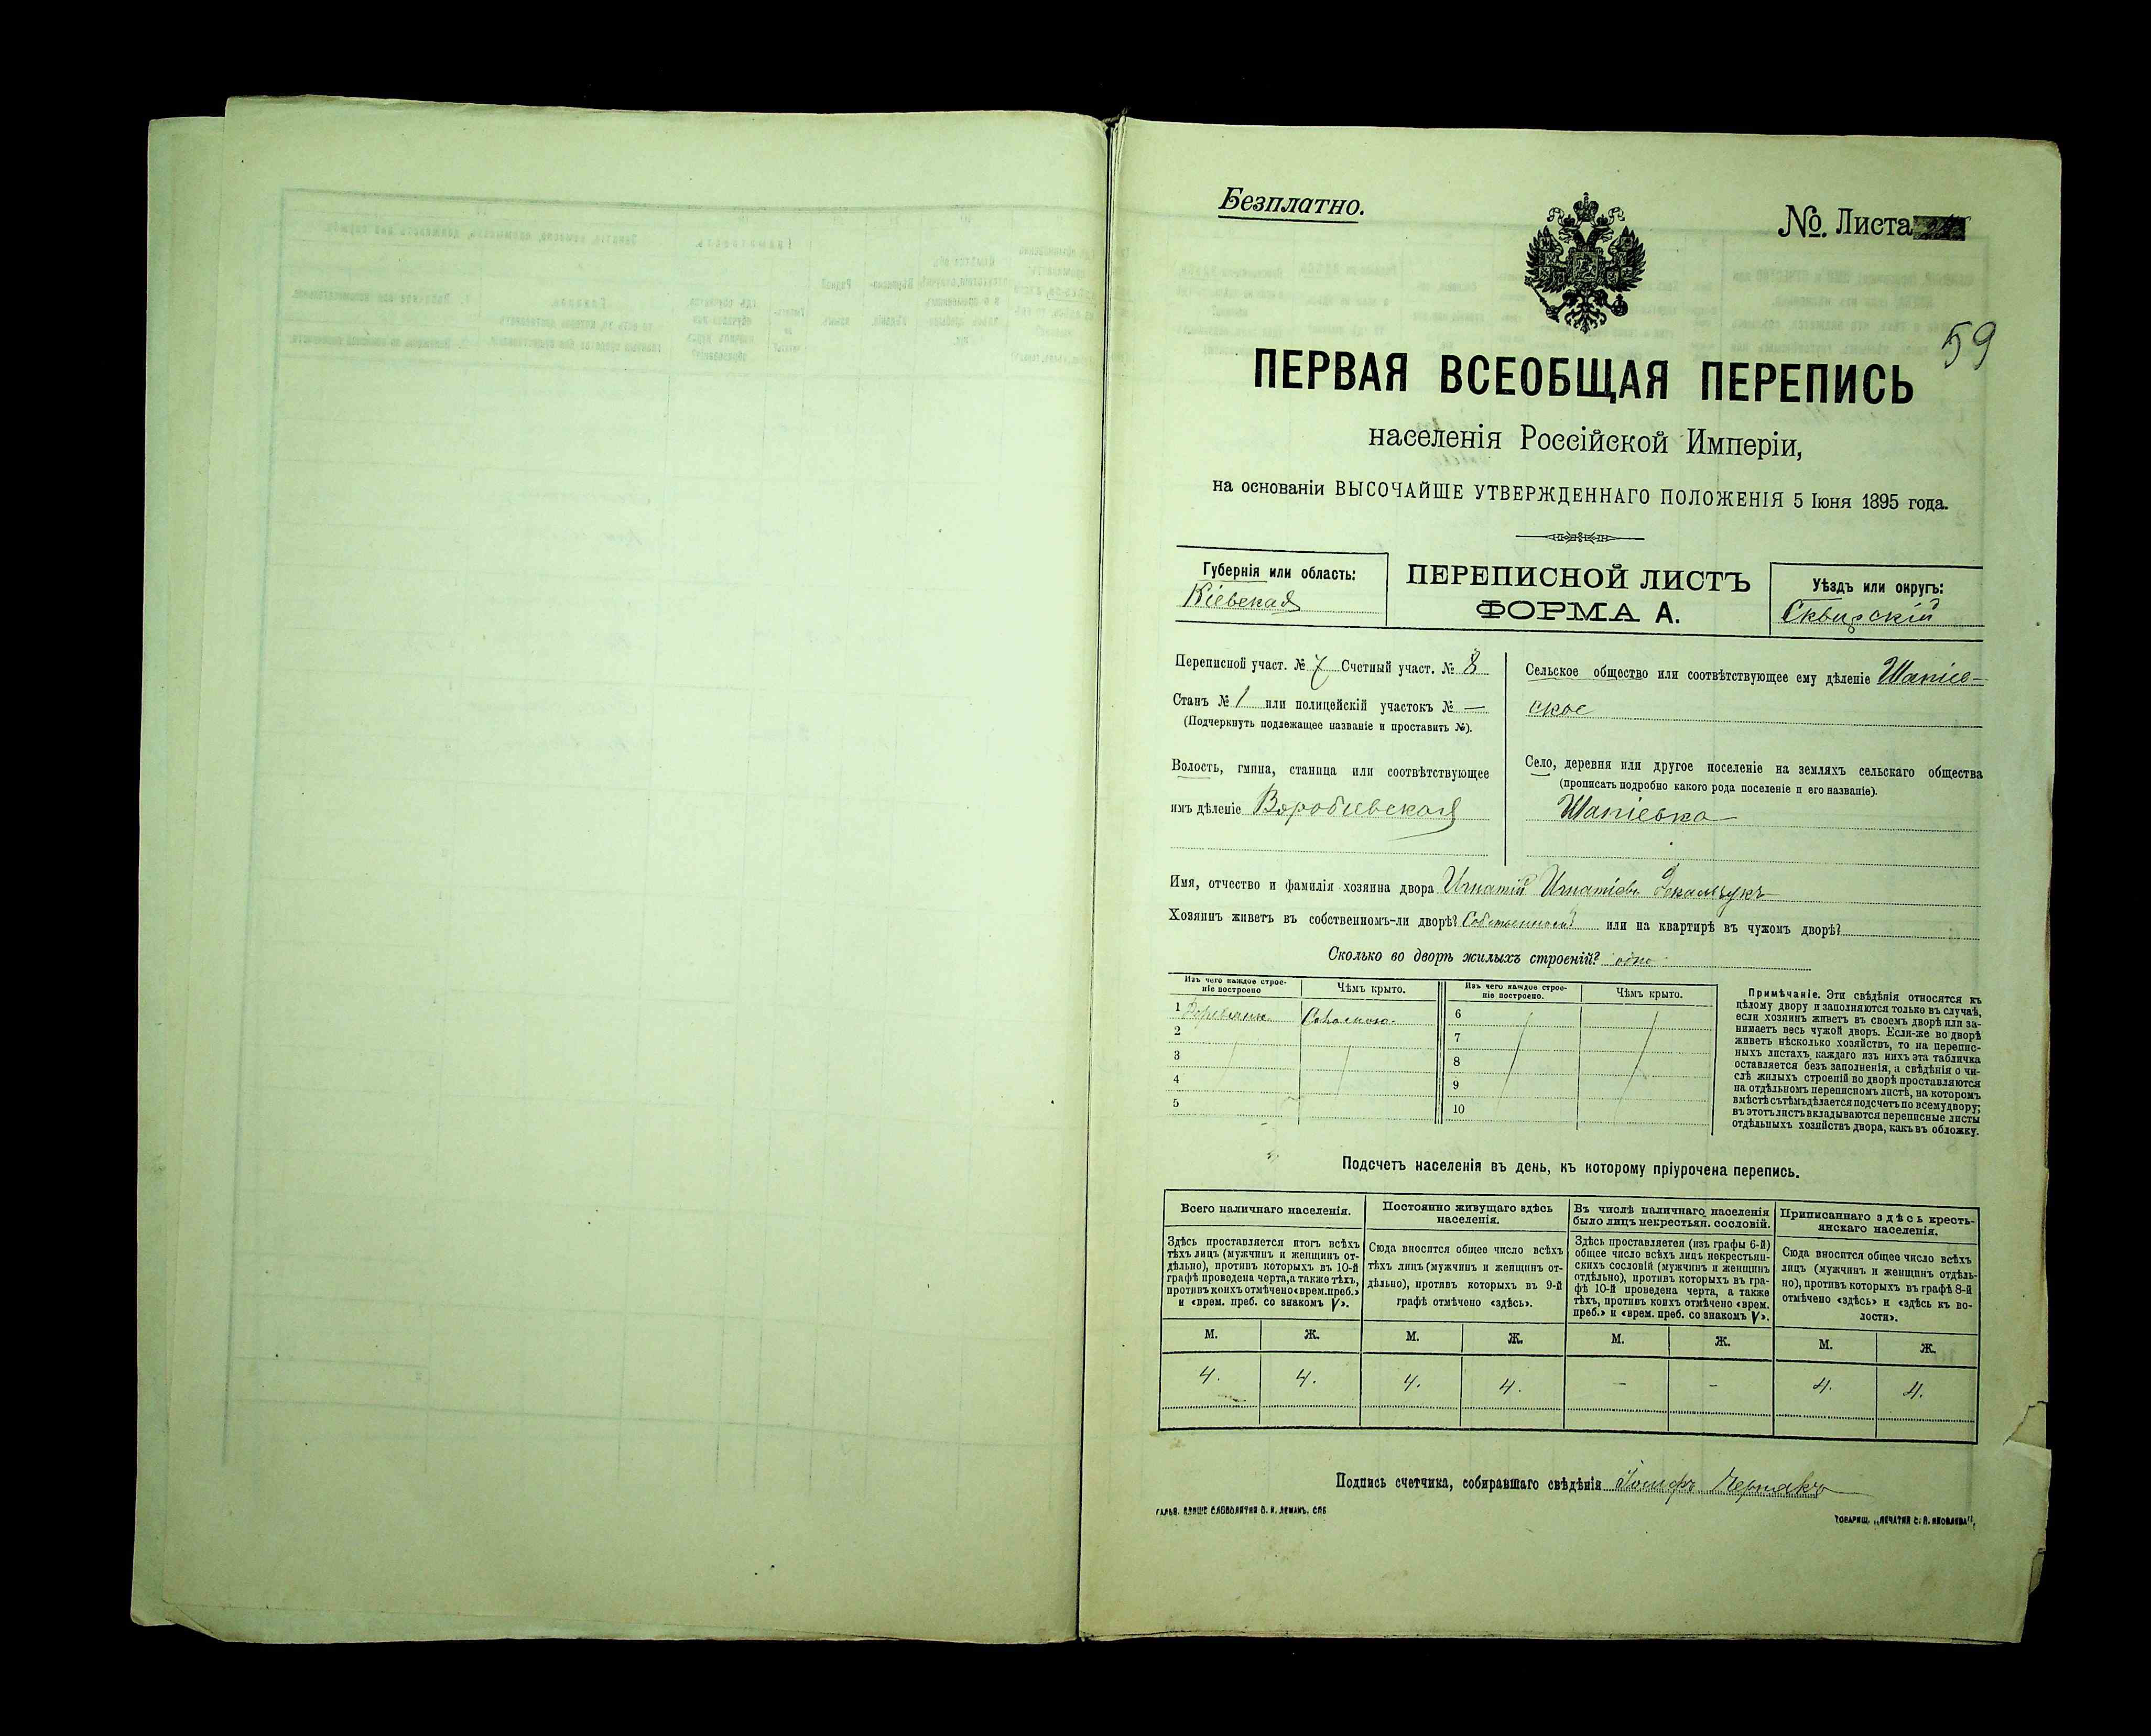 Безплатно.
№. Листа
59
ПЕРВАЯ ВСЕОБЩАЯ ПЕРЕПИСЬ
населенія Россійской Имперіи,
на основаніи ВЫСОЧАЙШЕ УТВЕРЖДЕННАГО ПОЛОЖЕНІЯ 5 Іюня 1895 года.
Губернія или область:
Кіевская
ПЕРЕПИСНОЙ ЛИСТЪ
ФОРМА А.
Уѣздъ или округъ:
Сквирскій
Переписной участ. № 7 Счетный участ. № 8
Станъ № 1 или полицейскій участокъ № —
(Подчеркнуть подлежащее названіе и проставить №).
Волость, гмина, станица или соотвѣтствующее
имъ дѣленіе Воробиевская
Сельское общество или соотвѣтствующее ему дѣленіе Шапіев-
ское
Село, деревня или другое поселеніе на земляхъ сельскаго общества
(прописать подробно какого рода поселеніе и его названіе).
Шапіевка
Имя, отчество и фамилія хозяина двора Игнатій Игнатіевъ
Хозяинъ живетъ въ собственномъ-ли дворѣ? Собственномъ или на квартирѣ въ чужомъ дворѣ?
Сколько во дворѣ жилыхъ строеній? одно
Изъ чего каждое строе-
ніе построено
Чѣмъ крыто.
Изъ чего каждое строе-
ніе построено.
Чѣмъ крыто.
1 Соломою
2
3
4
5
6
7
8
9
10
Примѣчаніе. Эти свѣдѣнія относятся къ
цѣлому двору и заполняются только въ случаѣ,
если хозяинъ живетъ въ своемъ дворѣ или за-
нимаетъ весь чужой дворъ. Если-же во дворѣ
живетъ нѣсколько хозяйствъ, то на перепис-
ныхъ листахъ каждаго изъ нихъ эта табличка
оставляется безъ заполненія, а свѣдѣнія о чи-
слѣ жилыхъ строеній во дворѣ проставляются
на отдѣльномъ переписномъ листѣ, на которомъ
вмѣстѣ съ тѣмъ дѣлается подсчетъ по всему двору;
въ этотъ листъ вкладываются переписные листы
отдѣльныхъ хозяйствъ двора, какъ въ обложку.
Подсчетъ населенія въ день, къ которому пріурочена перепись.
Всего наличнаго населенія.
Здѣсь проставляется итогъ всѣхъ
тѣхъ лицъ (мужчинъ и женщинъ от-
дѣльно), противъ которыхъ въ 10-й
графѣ проведена черта, а также тѣхъ,
противъ коихъ отмѣчено «врем. преб.»
и «врем. преб. со знакомъ V».
Постоянно живущаго здѣсь
населенія.
Сюда вносится общее число всѣхъ
тѣхъ лицъ (мужчинъ и женщинъ от-
дѣльно), противъ которыхъ въ 9-й
графѣ отмѣчено «здѣсь».
Въ числѣ наличнаго населенія
было лицъ некрестьян. сословій.
Здѣсь проставляется (изъ графы 6-й)
общее число всѣхъ лицъ некрестьян-
скихъ сословій (мужчинъ и женщинъ
отдѣльно), противъ которыхъ въ гра-
фѣ 10-й проведена черта, а также
тѣхъ, противъ коихъ отмѣчено «врем.
преб.» и «врем. преб. со знакомъ V».
Приписаннаго здѣсь кресть-
янскаго населенія.
Сюда вносится общее число всѣхъ
лицъ (мужчинъ и женщинъ отдѣль-
но), противъ которыхъ въ графѣ 8-й
отмѣчено «здѣсь» и «здѣсь въ во-
лости».
М. Ж. М. Ж. М. Ж. М. Ж.
4. 4. 4. 4. – – 4. 4.
Подпись счетчика, собиравшаго свѣдѣнія Іосифъ Чернякъ
ТОВАРИЩ. „ПЕЧАТНЯ С. П. ЯКОВЛЕВА".